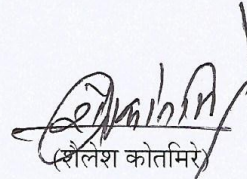 (शैलेश कोतमिरे)